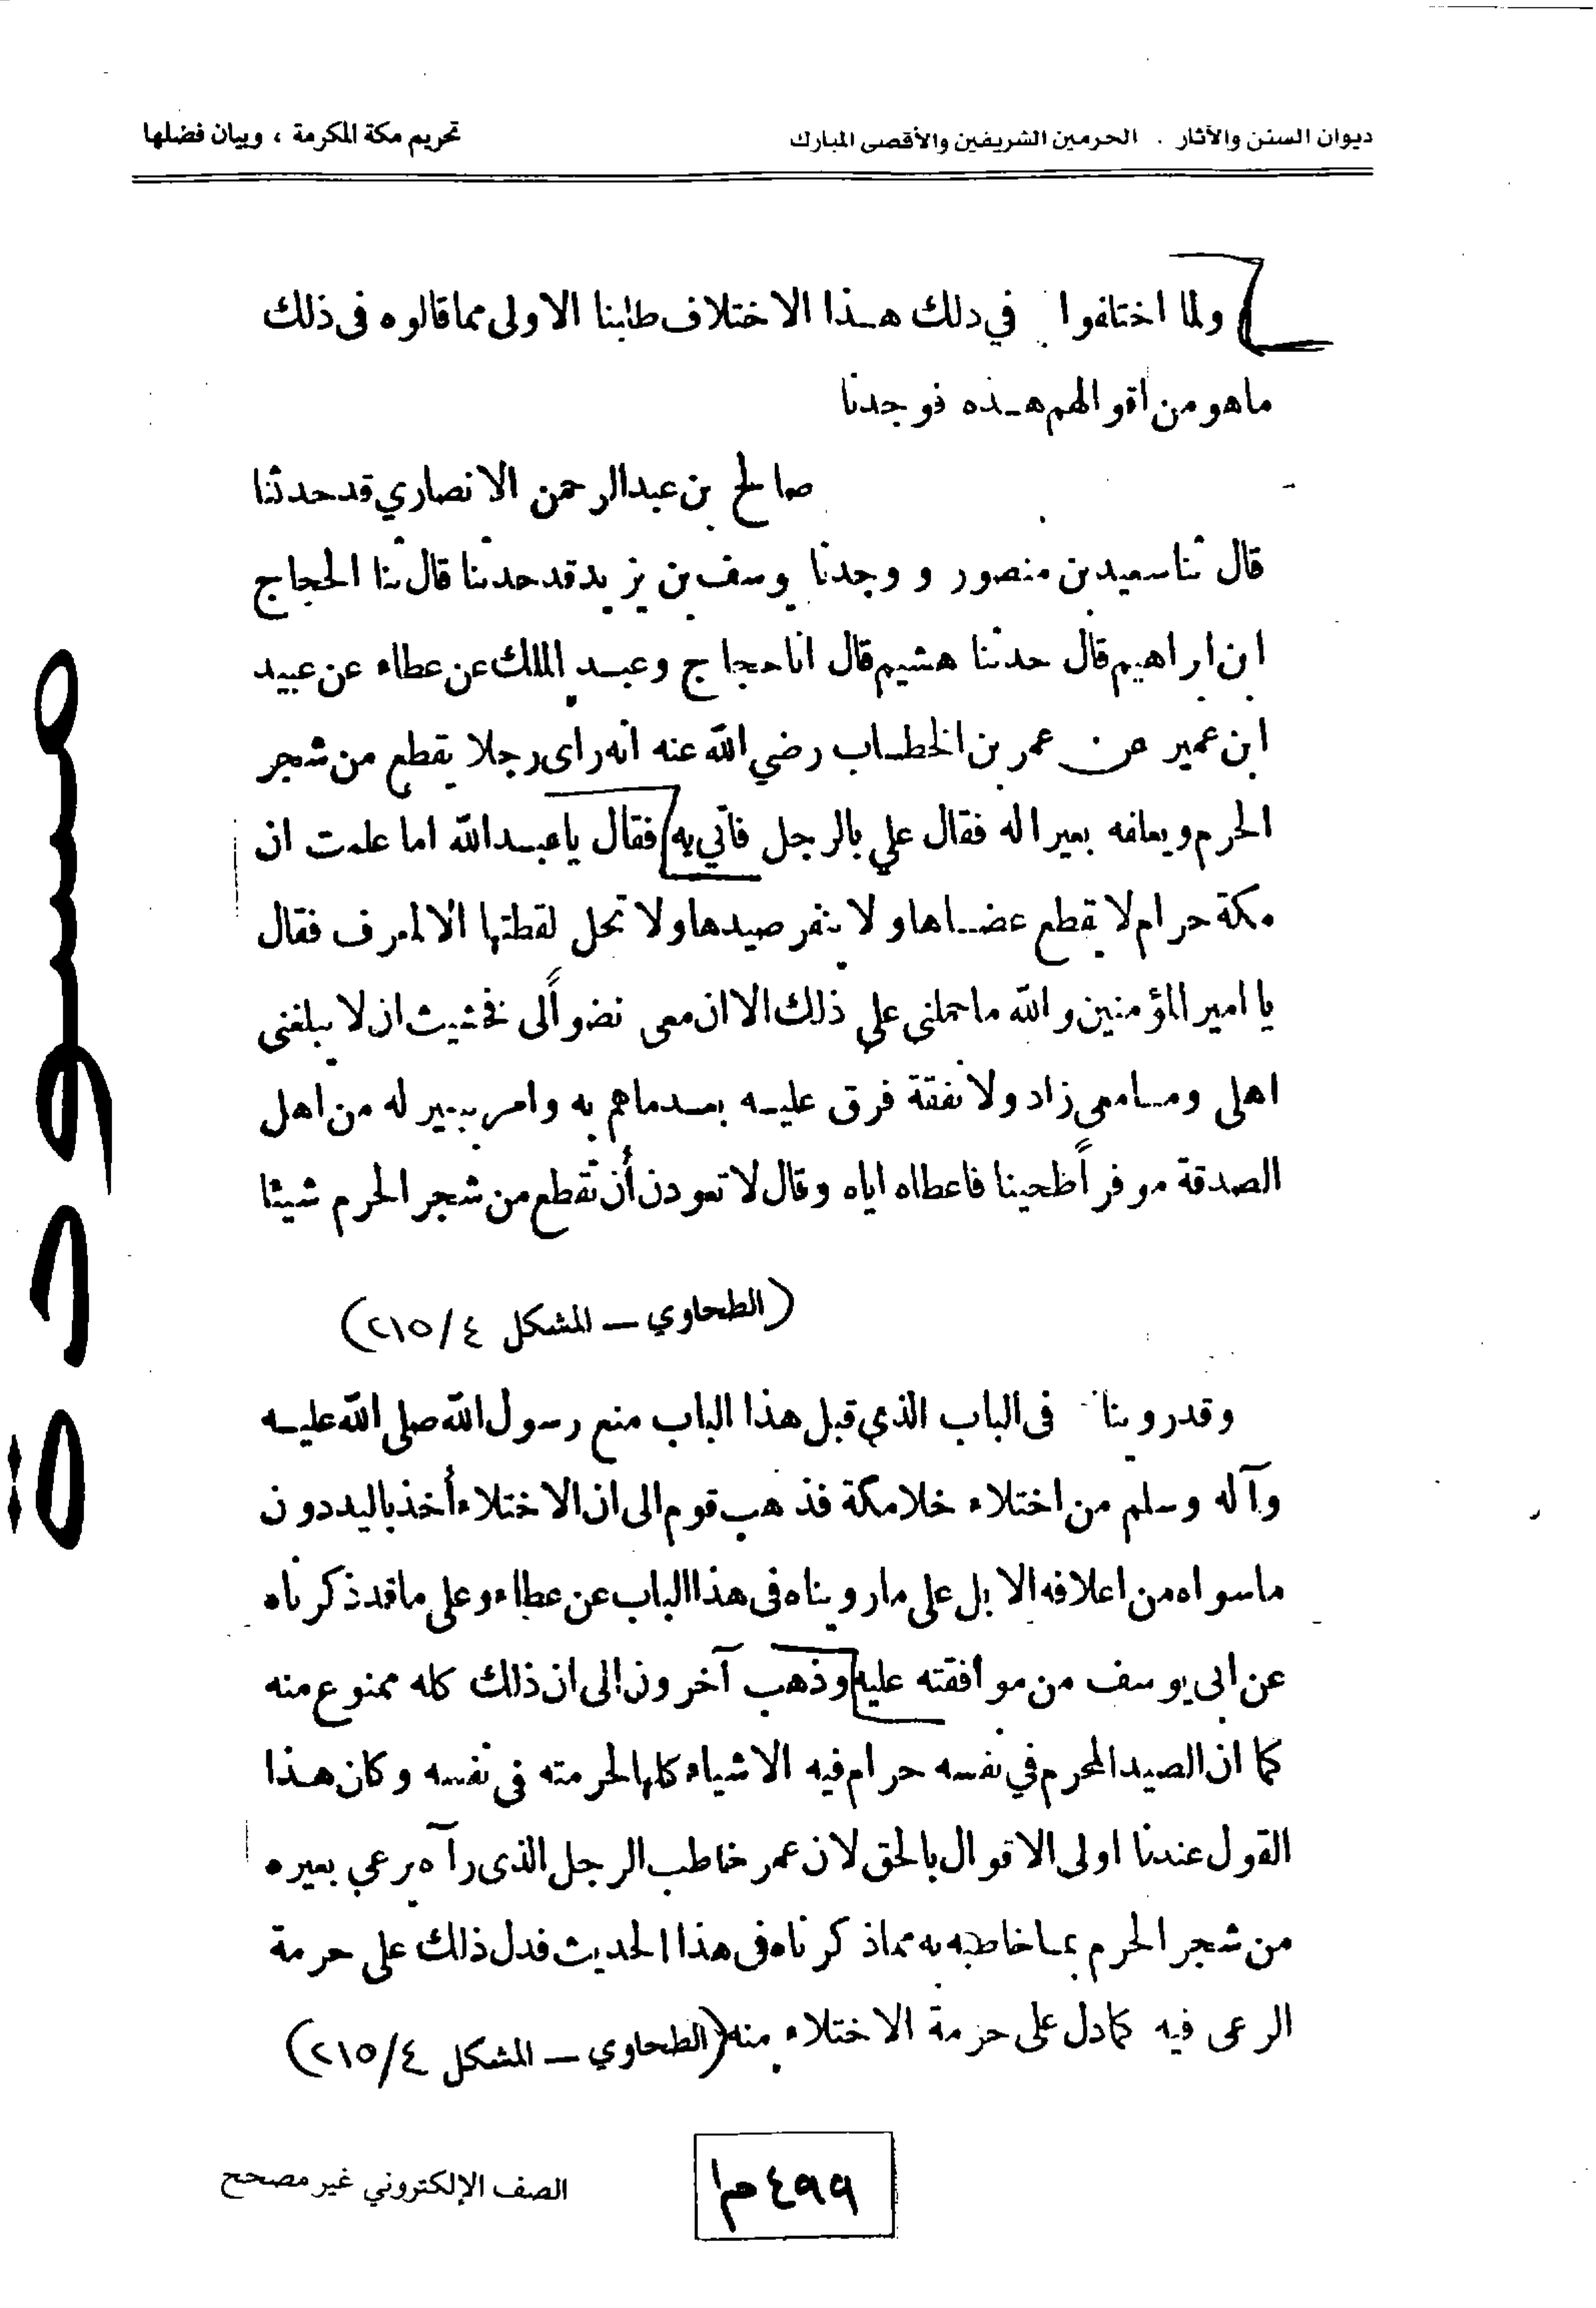 ديوان السنن والآثار . الحرمين الشريفين والأقصى المبارك
تحريم مكة المكرمة ، وبيان فضلها
ولما اختلفوا في ذلك هذا الاختلاف طلبنا الاولى مما قالوه فى ذلك
ما هو من اقوالهم هذه فوجدنا
صالح بن عبدالرحمن الانصاري قد حدثنا
قال ثنا سعيد بن منصور و وجدنا يوسف بن يزيد قد حدثنا قال ثنا الحجاج
ابن ابراهيم قال حدثنا هشيم قال انا حجاج وعبد الملك عن عطاء عن عبيد
ابن عمير عن عمر بن الخطاب رضي الله عنه انه راى رجلا يقطع من شجر
الحرم ويعلفه بعيرا له فقال علي بالرجل فأتي به فقال يا عبد الله اما علمت ان
مكة حرام لا يقطع عضاها ولا ينفر صيدها ولا تحل لقطتها الا لمعرف فقال
يا امير المؤمنين والله ما حملنى على ذلك الا ان معى نضوا لى فخشيت ان لا يبلغنى
اهلى وما معى زاد ولا نفقة فرق عليه بعد ما هم به وامر ببعير له من اهل
الصدقة موفراً ظحينا فاعطاه اياه وقال لا تعودن أن تقطع من شجر الحرم شيئا
(الطحاوي – المشكل ٤/ ٢١٥)
وقد روينا فى الباب الذي قبل هذا الباب منع رسول الله صلى الله عليه
وآله وسلم من اختلاء خلا مكة فذهب قوم الى ان الاختلاء أخذ باليد دون
ما سواه من اعلافه الابل على ما رويناه فى هذا الباب عن عطاء وعلى ما قد ذكرناه
عن ابى يوسف من موافقته عليه وذهب آخرون الى ان ذلك كله ممنوع منه
كما ان الصيد المحرم في نفسه حرام فيه الاشياء كلها لحرمته فى نفسه وكان هذا
القول عندنا اولى الاقوال بالحق لان عمر خاطب الرجل الذى رآه يرعي بعيره
من شجر الحرم بما خاطبه به مما ذكرناه فى هذا الحديث فدل ذلك على حرمة
الرعى فيه كما دل على حرمة الاختلاء منه (الطحاوي – المشكل ٤/ ٢١٥)
٤٩٩ م١
الصف الإلكتروني غير مصحح
مسودة